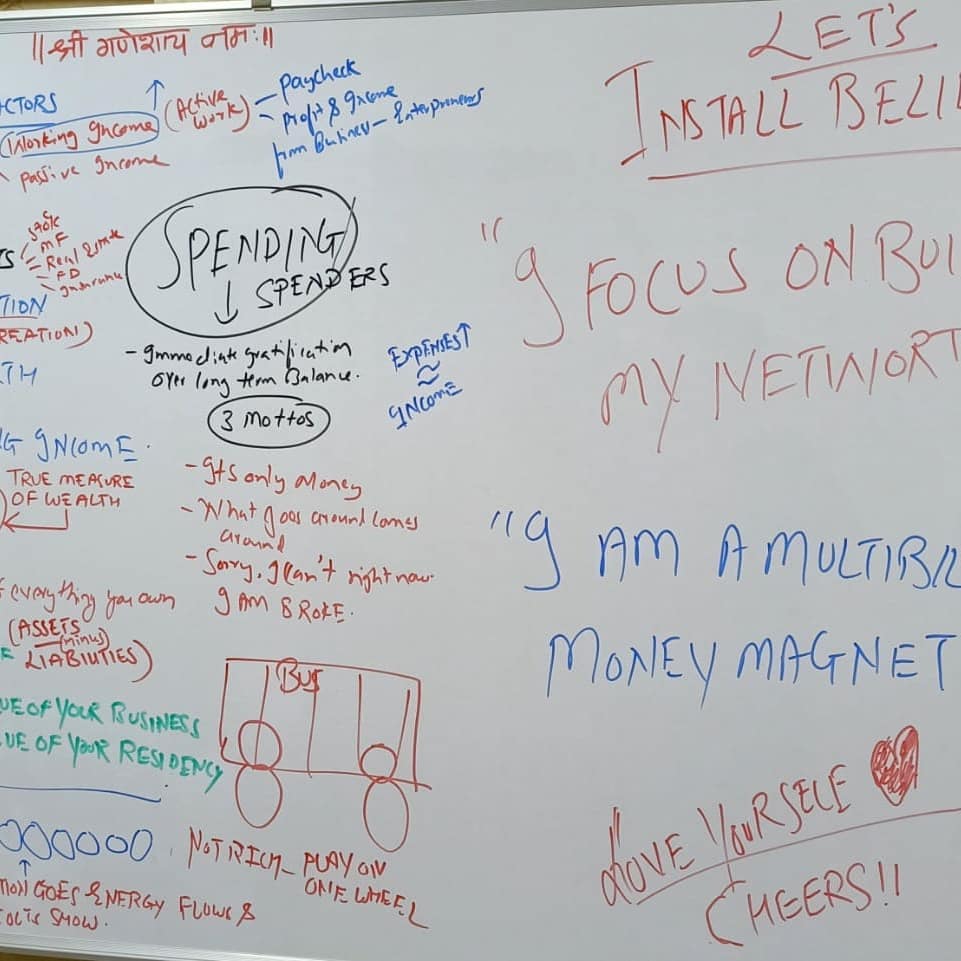 ॥ श्री गणेशाय नमः॥
CTORS
Working Income (ACTIVE WORK) – Paycheck
– Profit & Income
from Business – Enterpreneurs
Passive Income
Stock
MF
Real Estate
FD
Insurance
TION
REATION)
TH
G INCOME.
TRUE MEASURE
OF WEALTH
everything you own
(ASSETS
(minus)
LIABILITIES)
UE OF YOUR BUSINESS
UE OF YOUR RESIDENCY
000000
ION GOES ENERGY FLOWS &
SHOW.
SPENDING
↓ SPENDERS
- Immediate gratification
over long term Balance.
EXPENSES↑
≈
INCOME
3 Mottos
- Its only Money
- What goes around comes
around
- Sorry, I Can't right now
I AM BROKE.
BUS
NOT RICH_ PLAY ON
ONE WHEEL
LET'S
INSTALL BELI
"I FOCUS ON BUI
MY NETWORT
"I AM A MULTIBIL
MONEY MAGNET
LOVE YOURSELF
CHEERS!!